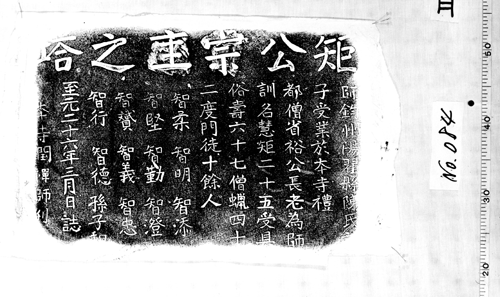 矩公宗主之塔
師錄州陽縣陳氏
子受業於本寺禮
都僧省裕公長老為師
訓名慧矩二十五受具
俗壽六十七僧臘四十
二度門徒十餘人
智柔 智明 智添
智堅 智勤 智澄
智贇 智義 智惠
智行 智德 孫子
至元二十六年三月日誌
No. 084
50
40
30
20